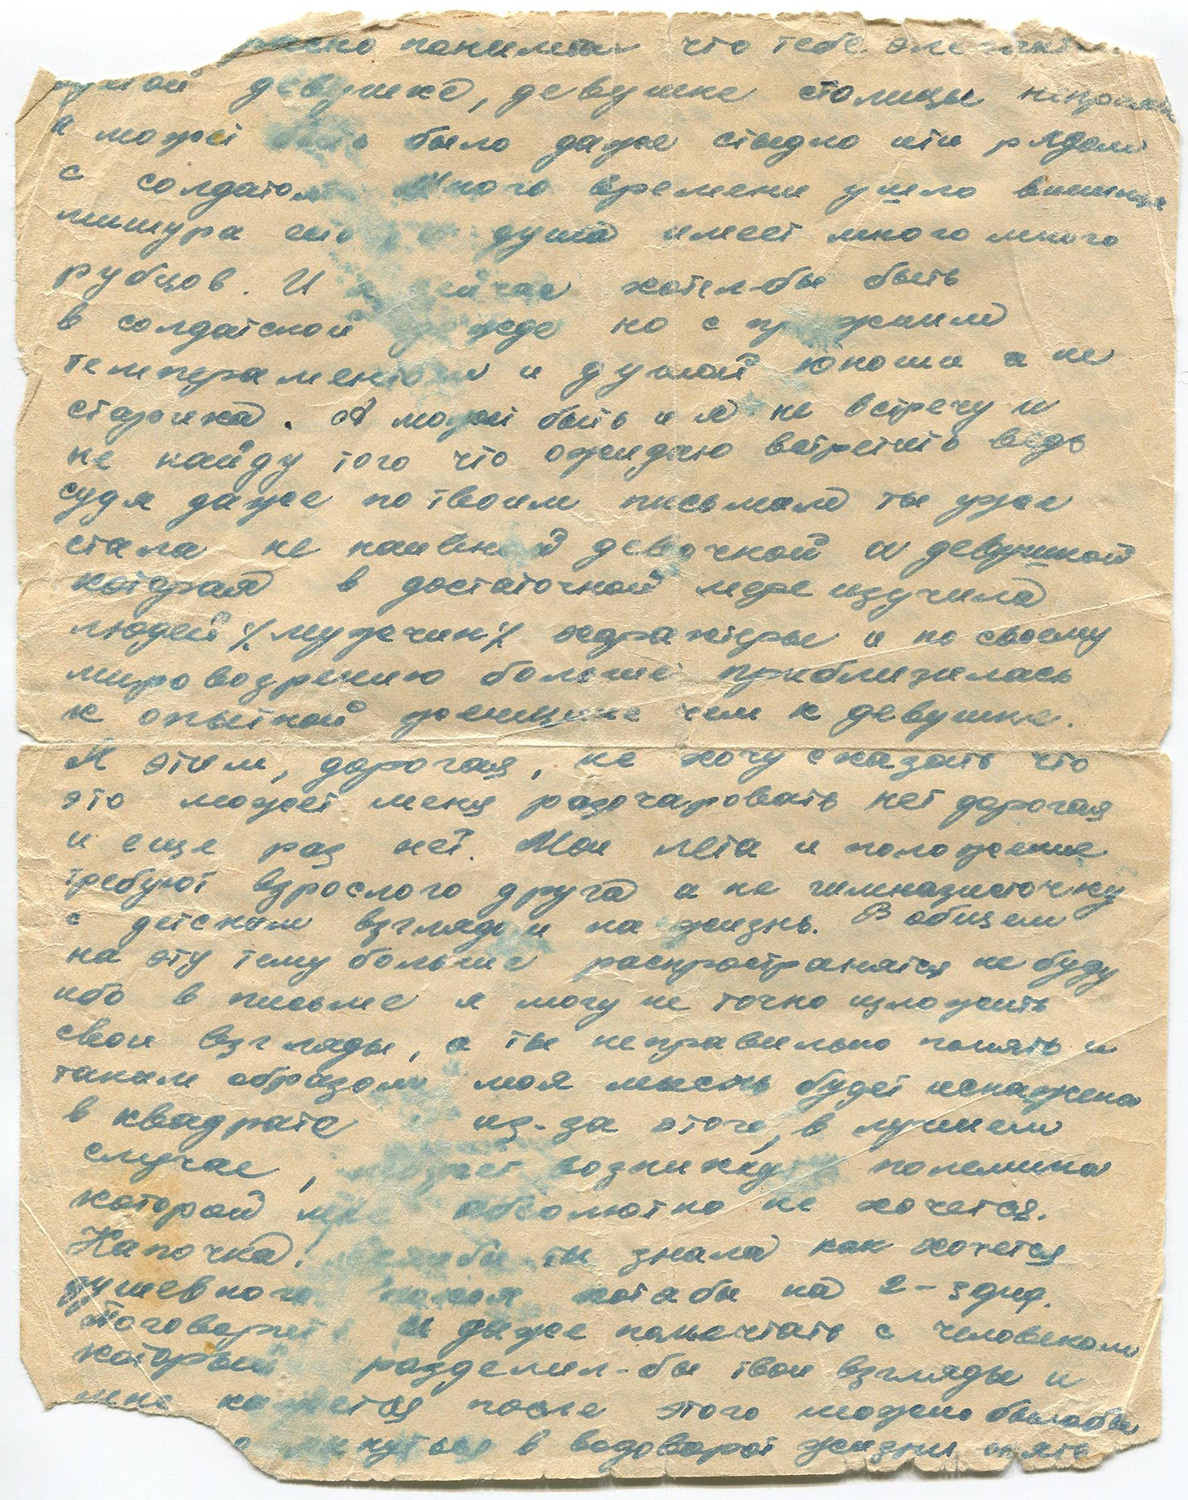 понимаю что тебе
девушке, девушке столицы
и может быть было даже стыдно итти рядом
с солдатом Много времени ушло
мишура душа имеет много много
рубцов. И я сейчас хотел-бы быть
в солдатской одежде но с прежним
темпераментом и душой юноши а не
старика. А может быть и я не встречу и
не найду того что ожидаю встретить ведь
судя даже по твоим письмам ты уже
стала не наивной девочкой а девушкой
которая в достаточной мере изучила
людей /мужчин/ характеры и по своему
мировозрению больше приблизилась
к опытной женщине чем к девушке.
Я этим, дорогая, не хочу сказать что
это может меня разочаровать нет дорогая
и еще раз нет. Мои лета и положение
требуют взрослого друга а не гимназисточку
с детским взглядом на жизнь. В общем
на эту тему больше распространятся не буду
ибо в письме я могу не точно изложить
свои взгляды, а ты неправильно понять и
таким образом моя мысль будет искажена
в квадрате из-за этого, в лучшем
случае, может возникнуть полемика
которой мне абсолютно не хочется.
Капочка! Если бы ты знала как хочется
душевного покоя хотабы на 2-3 дня.
Поговорить и даже помечтать с человеком
который разделил-бы твои взгляды и
мне кажется после этого можно былобы
в водоворот жизни опять